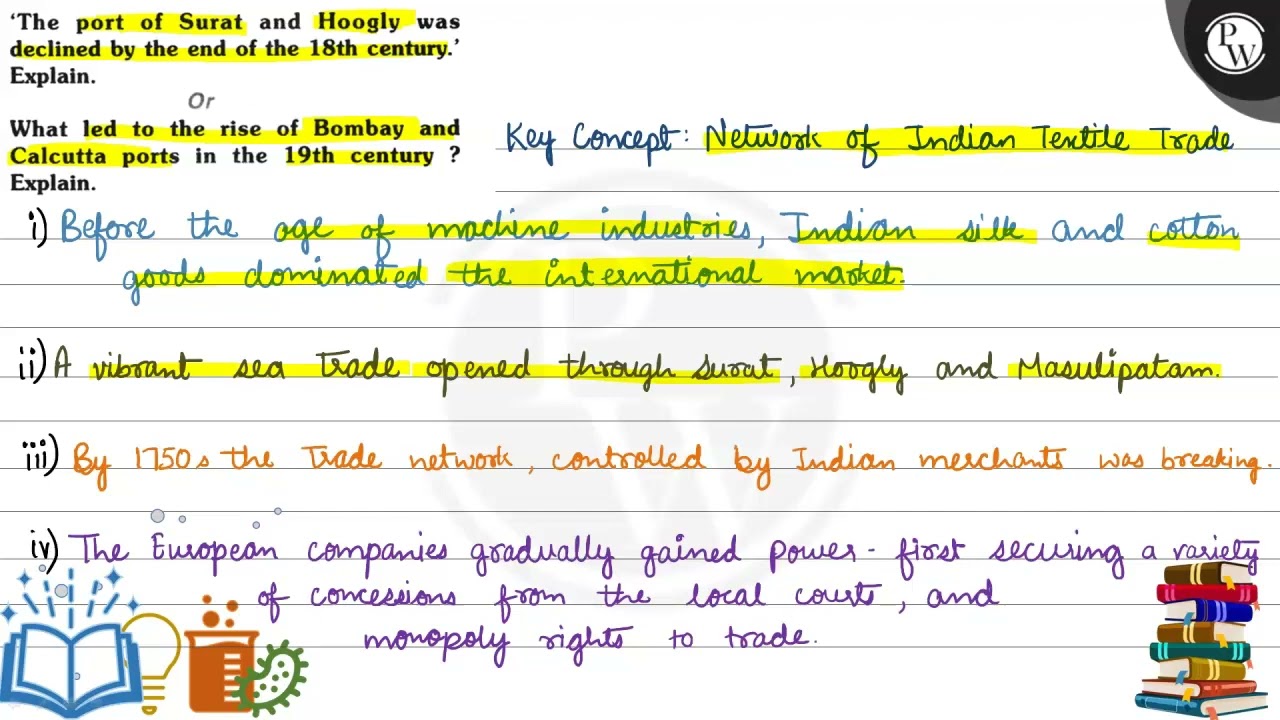 'The port of Surat and Hoogly was
declined by the end of the 18th century.'
Explain.
Or
What led to the rise of Bombay and
Calcutta ports in the 19th century ?
Explain.
PW
Key Concept: Network of Indian Textile Trade
i) Before the age of machine industries, Indian silk and cotton
goods dominated the international market.
ii) A vibrant sea trade opened through Surat, Hoogly and Masulipatam.
iii) By 1750s the trade network, controlled by Indian merchants was breaking.
iv) The European companies gradually gained power - first securing a variety
of concessions from the local courts, and
monopoly rights to trade.